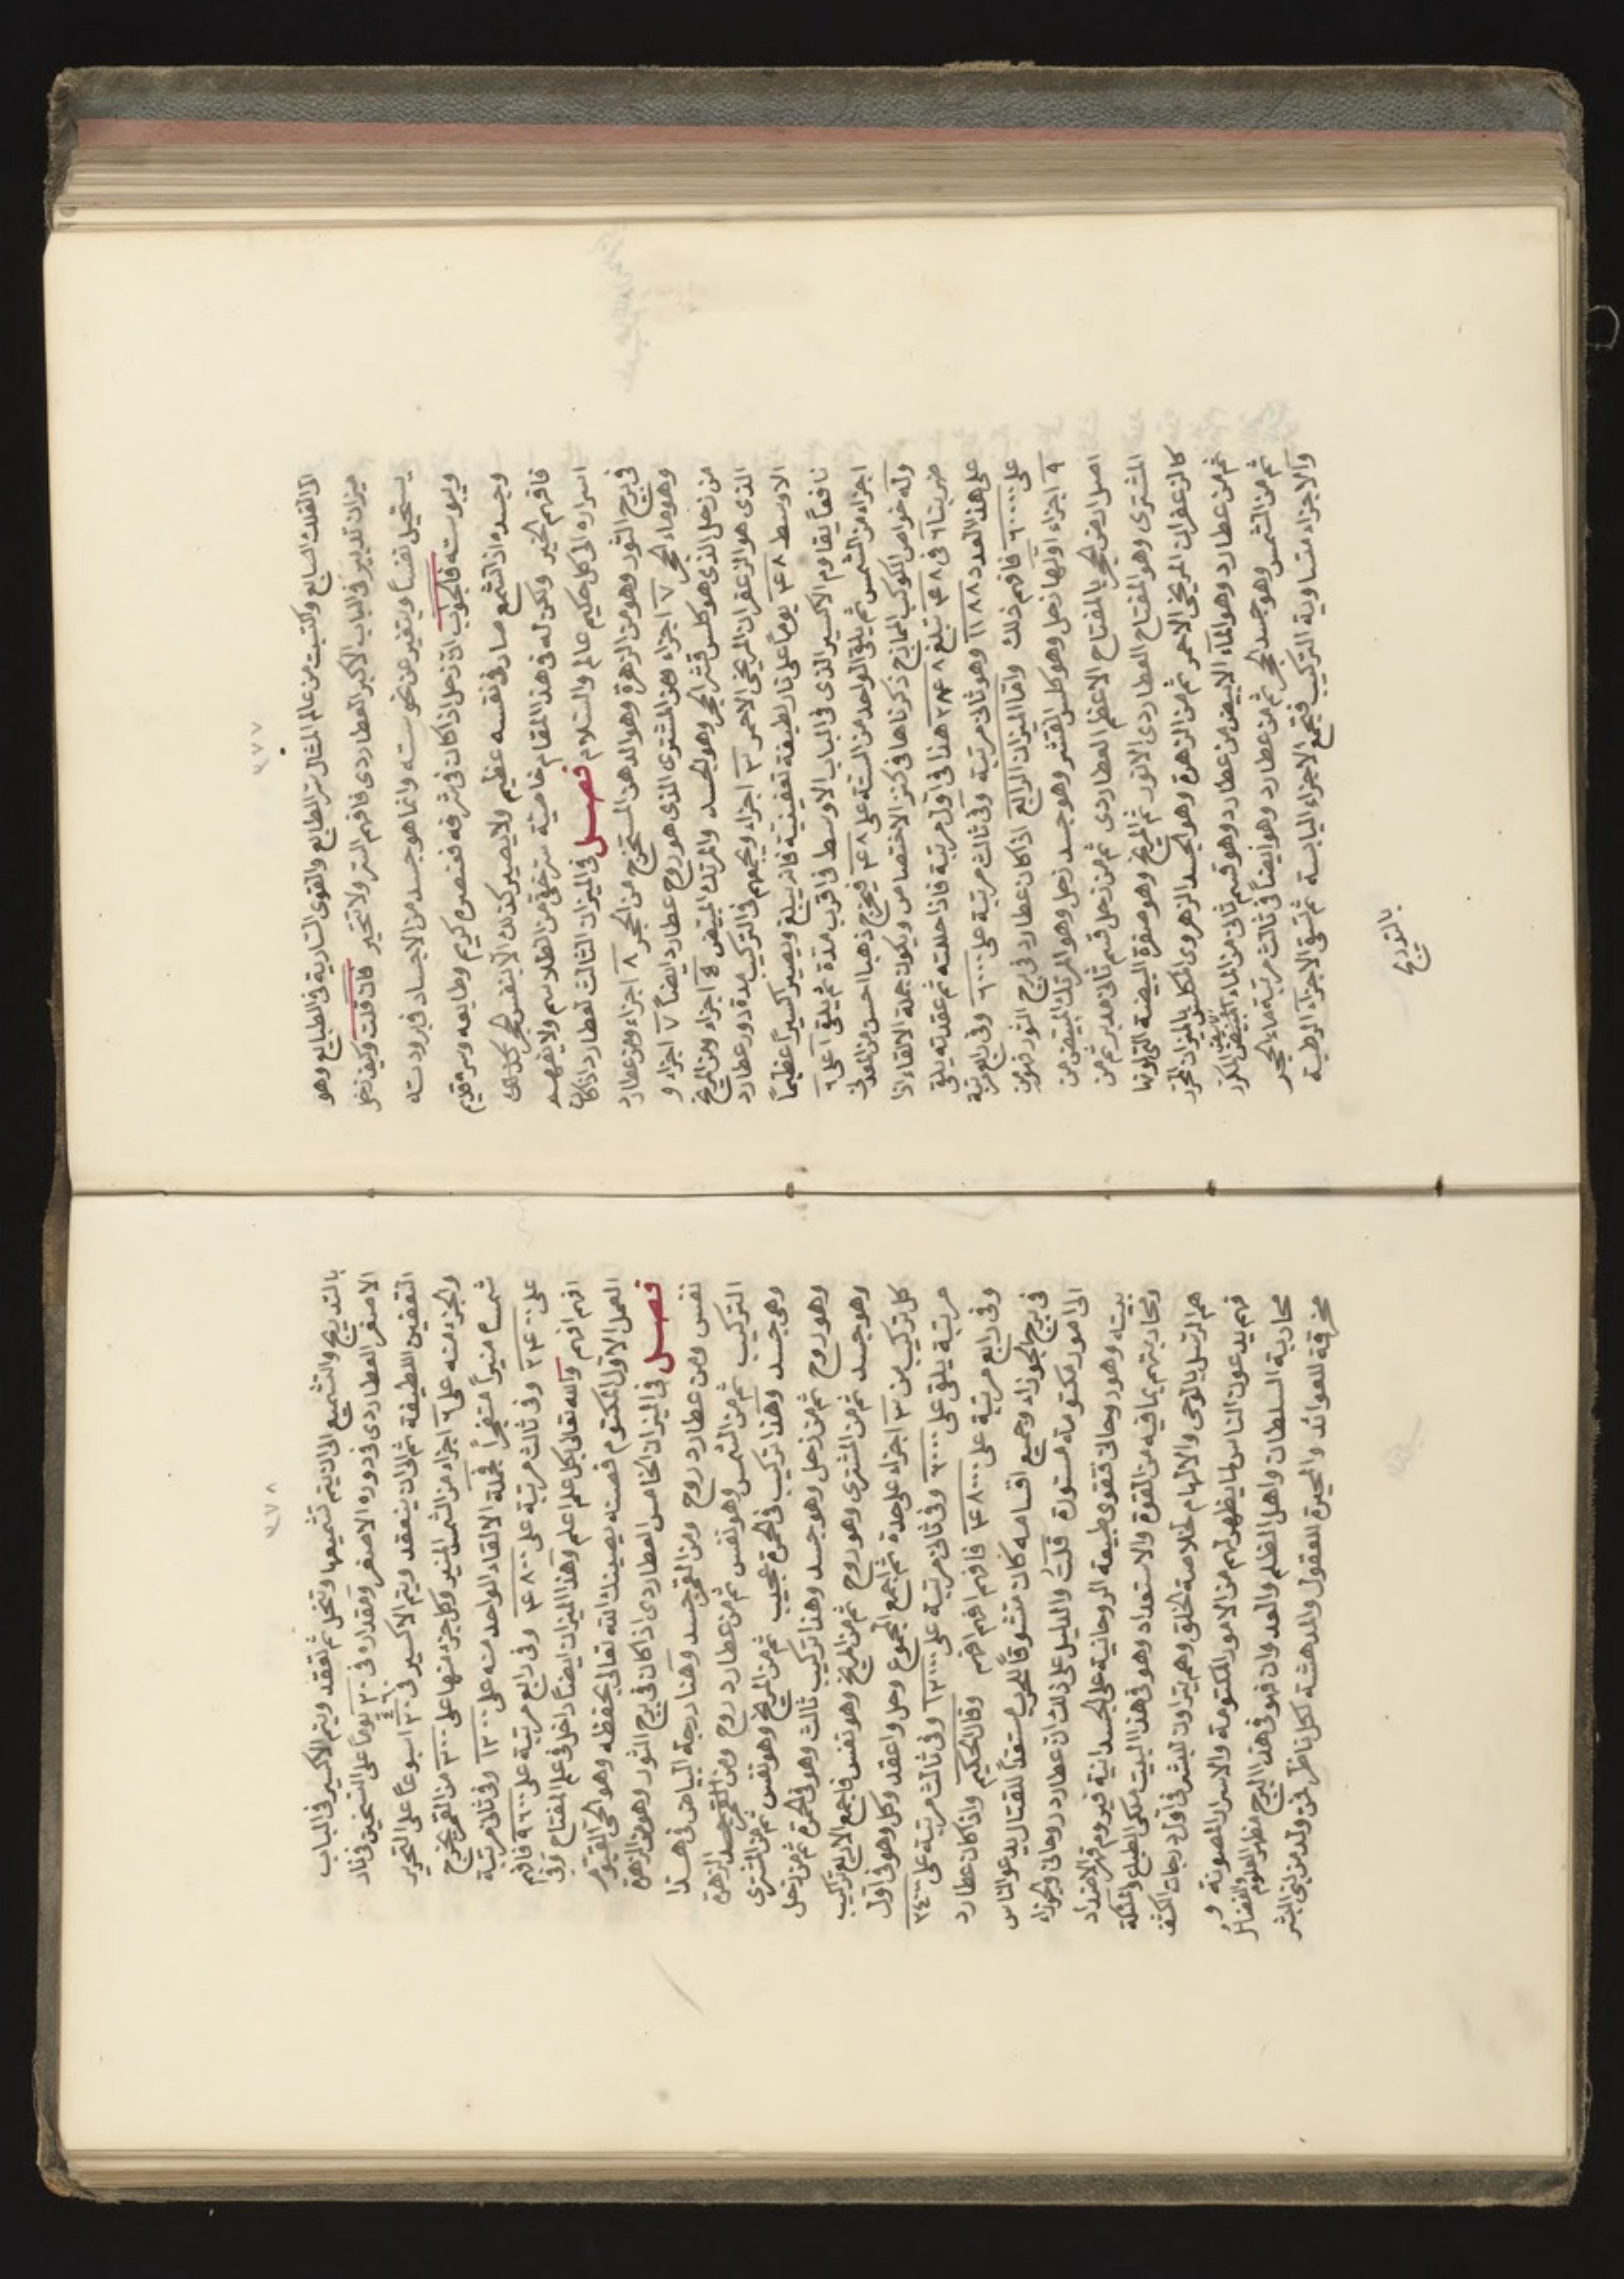 ٤٧٧
الافلاك السابع واكتسبت من عالم المثال سر الطابع والقوى السارية فى الطبايع وهو
ميزان تدبير فى الباب الاكبر العطاردى فافهم السر ولا تتحير فان قلت وكيف زحل
يستحيل نفساً ويتغير عن نحوسته وانما هو جسد من الاجساد فى برودته
ويبوسته فالجواب ان زحل اذا كان فى شرفه فعنصره كريم وطابعه وسره قديم
وجسده اذا تشمع صار فى نفسه عظيم ولا يصير كذلك الا بنفس الحجر
فافهم الخير ولكن له فى هذا المقام خاصية سر خفى من الطلاسم ولا يفهم
اسراره الا كل حكيم عالم والسلام فصل فى الميزان الثالث لعطارد اذا كان
فى برج الثور وهو من الزهرة وهو الدهن المستخرج من الحجر ٨ اجزاء ومن عطارد
وهو ماء الحجر ٧ اجزاء ومن المشترى الذى هو روح عطارد ايضاً ٧ اجزاء و
من زحل الذى هو كلس قشر الحجر وهو الجسد والمرتك المبيض ٤ اجزاء ومن المريخ
الذى هو الزعفران المريخى الاحمر ٣ اجزاء ويجمعهم فى التركيب مدة دور عطارد
الاوسط ٤٨ يوماً على نار لطيفة تعفينية فانه يبلغ ويصير اكسيراً عظيماً
نافعاً يقاوم الاكسير الذى فى الباب الاوسط فى اقرب مدة ثم يلقى اعلى ٦
اجزاء من الشمس ثم يلقى الواحد من الستة على ٤٨ فيخرج ذهبا احسن من المعدنى
وله خواص الكوكب الممازج ذكرناها فى كنز الاختصاص ويكون جملة الالقاء اذا
ضربنا ٦ فى ٤٨ تبلغ ٢٨٨ هذا فى اول مرتبة فاذا حللته ثم عقدته يلقى
على هذا العدد ١١٨٨ وهو ثانى مرتبة وفى ثالث مرتبة على ٦٠٠٠ وفى رابع مرتبة
على ٦٠٠٠٠ فافهم ذلك واما الميزان الرابع اذا كان عطارد فى برج الثور فهو من
٩ اجزاء اولها زحل وهو كلس القشر وهو جسد زحل وهو المرتك المبيض من
اصل ارض الحجر بالمفتاح الاعظم العطاردى ثم من زحل قسم ثانى مدبر ثم من
المشترى وهو المفتاح العطاردى الانور ثم المريخ وهو صفرة البيضة التى لونها
كالزعفران المريخى الاحمر ثم من الزهرة وهو الجسد الزهروى المكلس بالميزان المحرر
ثم من عطارد وهو الماء الابيض من عطارد وهو قسم ثانى من الماء المبيض المكرر
ثم من الشمس وهو جسد الحجر ثم من عطارد وهو ايضاً فى ثالث مرتبة ماء الحجر
والاجزاء متساوية التركيب فتجمع الاجزاء اليابسة ثم تسقى الاجزاء الرطبة
بالتدريج
٤٧٨
بالتدريج والتشميع الى ان يتم تشميعها وتحل ثم تعقد ويتم الاكسير فى الباب
الاصغر العطاردى فى دوره الاصغر ومقداره فى ٢٠ يوماً على التسخين فى نار
التعفين اللطيفة ثم الى ان ينعقد ويتم الاكسير فى اسبوعاً على التحرير
والجزء منه على ٦ اجزاء من الشمس المنير وكل جزء منها على ٢٠٠ من القمر يخرج
شمسا منيراً متفجراً فجملة الالقاء الواحد منه على ١٢٠٠ وفى ثانى مرتبة
على ٢٤٠٠ وفى ثالث مرتبة على ٤٨٠٠ وفى رابع مرتبة على ٩٦٠٠ فافهم
افهم افهم والله تعالى بكل علم اعلم وهذا الميزان ايضاً داخل فى علم المفتاح وفى
العمل الاول المكتوم فصنه يصينك الله تعالى بحفظه وهو الحى القيوم
فصل فى الميزان الخامس العطاردى اذا كان فى برج الثور وهو من الزهرة
نفس ومن عطارد روح ومن القمر جسد وهنا درجة البياض فى هذا
التركيب ثم من الشمس وهو نفس ثم من عطارد روح ومن القمر جسد الزهرة
وهى جسد وهذا تركيب فى الحمرة عجيب ثم من المريخ وهو نفس ثم من المشترى
وهو روح ثم من زحل وهو جسد وهذا تركيب ثالث وهو فى الحمرة ثم من زحل
وهو جسد ثم من المشترى وهو روح ثم من المريخ وهو نفس فاجمع الاربع تراكيب
كل تركيب من ٣ اجزاء على حدة ثم اجمع المجموع وحل واعقد وكل وهو فى اول
مرتبة يلقى على ٦٠٠٠ وفى ثانى مرتبة على ١٢٠٠٠ وفى ثالث مرتبة على ٢٤٠٠٠
وفى رابع مرتبة على ٤٨٠٠٠ فافهم افهم افهم وقال الحكيم واذا كان عطارد
فى برج الجوزاء وجميع اقسامه كان متشوقاً للحرب مستعداً للقتال يدعو الناس
الى امور مكتومة مستورة قلت والدليل على ذلك ان عطارد روحانى والجوزاء
بيته وهو روحانى فتقوى طبيعة الروحانية على الجسدانية فيروم قهر الاضداد
ومحاربتهم بما فيه من القوة والاستعداد وهو فى هذا البيت ملكى الطبع والملائكة
هم الرسل بالوحى والالهام لخلاصة الخلق وهم يتراون للبشر فى اول درجات الكشف
فهم يدعون الناس لما يظهر لهم من الامور المكتومة والاسرار المصونة و
محاربة السلطان واهل الظلم والعدوان فهو فى هذا البرج مظهر العلوم والفضائل
مخرقة للعوائد والحيرة للعقول والدهشة لكل ناظر فمن ولد من بنى البشر